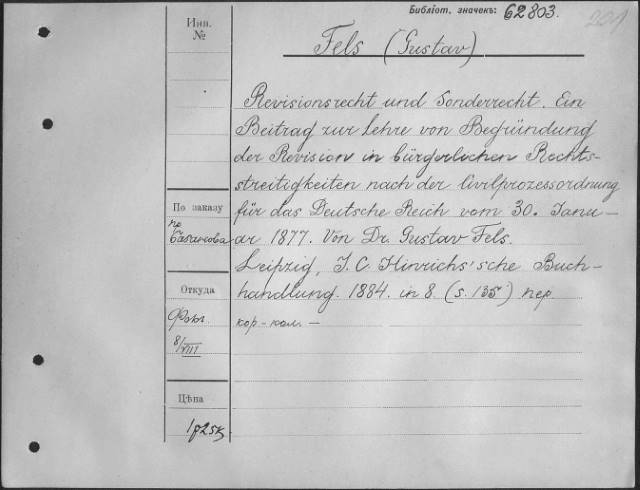 Библіот. значекъ: 62803.
201
Инв.
№
Fels (Gustav)
Revisionsrecht und Sonderrecht. Ein
Beitrag zur Lehre von Begründung
der Revision in bürgerlichen Rechts-
streitigkeiten nach der Civilprozessordnung
für das Deutsche Reich vom 30. Janu-
ar 1877. Von Dr. Gustav Fels.
Leipzig, J. C. Hinrichs'sche Buch-
handlung. 1884. in 8. (s. 135) пер.
кор-кол. —
По заказу
пр
Откуда
8/VIII
Цѣна
1р25к.